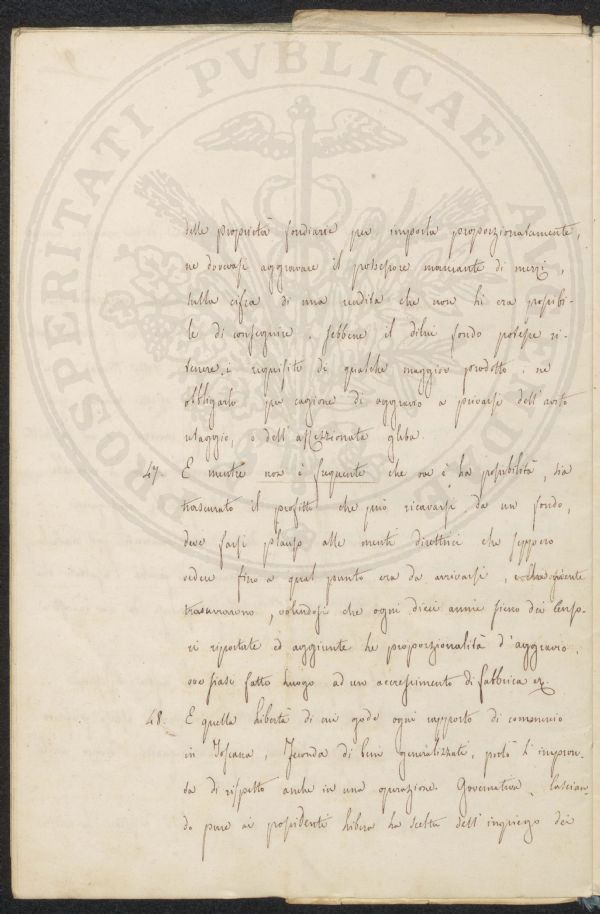 PROSPERITATI PVBLICAE AVGENDAE
delle proprietà fondiarie per imporla proporzionatamente,
ne dovevasi aggravare il possessore mancante di mezzi,
sulla cifra di una rendita che non li era possibi-
le di conseguire. Sebbene il di lui fondo potesse ri-
tenere i requisiti di qualche maggior prodotto; ne
obbligarlo per cagione di aggravio a privarsi dell'avito
retaggio, o dell'affezzionata gleba.
47. E mentre non è frequente che ove è la possibilità, sia
trascurato il profitto che può ricavarsi da un fondo,
deve farsi plauso alle menti direttrici che seppero
vedere fino a qual punto era da arrivarsi,
trascurarono, volendosi che ogni dieci anni sieno dei Censo-
ri riportate ed aggiunte le proporzionalità d'aggravio,
ove siasi fatto luogo ad un accrescimento di fabbrica ec.
48. E quella libertà di cui gode ogni rapporto di commercio
in Toscana, feconda di beni generalizzati, portò l'impron-
ta di rispetto anche in una operazione Governativa, lascian-
do pure ai possidenti libera la scelta dell'impiego dei